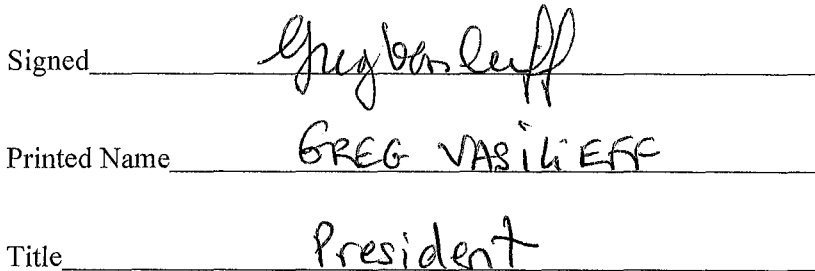 Signed Greg Vasilieff
Printed Name GREG VASILIEFF
Title President